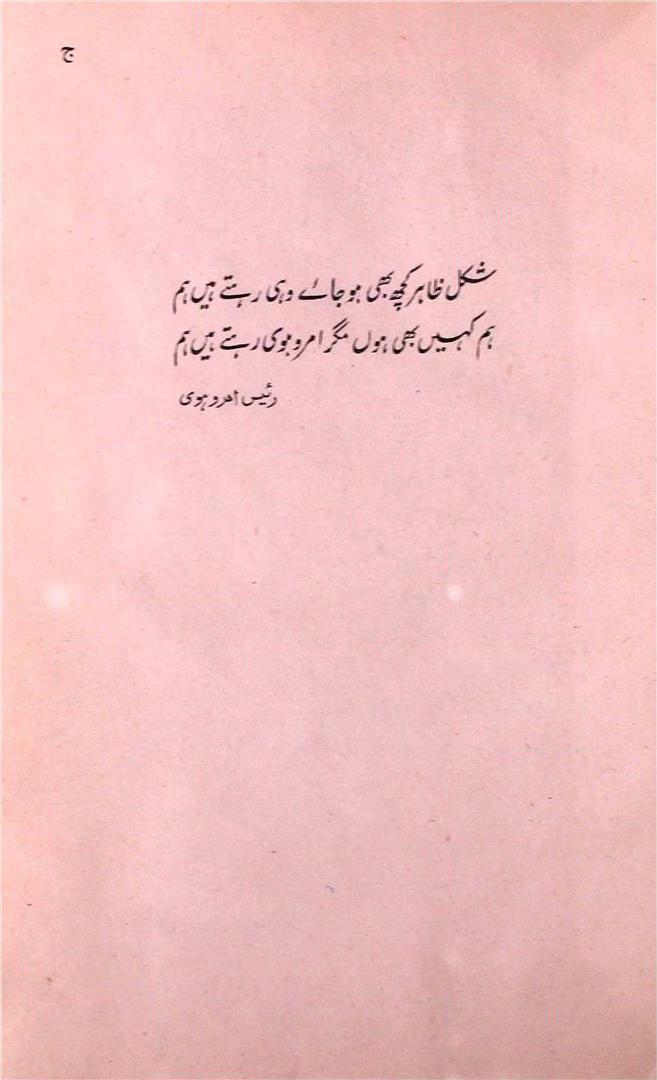 ج
شکل ظاہر کچھ بھی ہو جائے وہی رہتے ہیں ہم
ہم کہیں بھی ہوں مگر امروہوی رہتے ہیں ہم
رئیس امروہوی